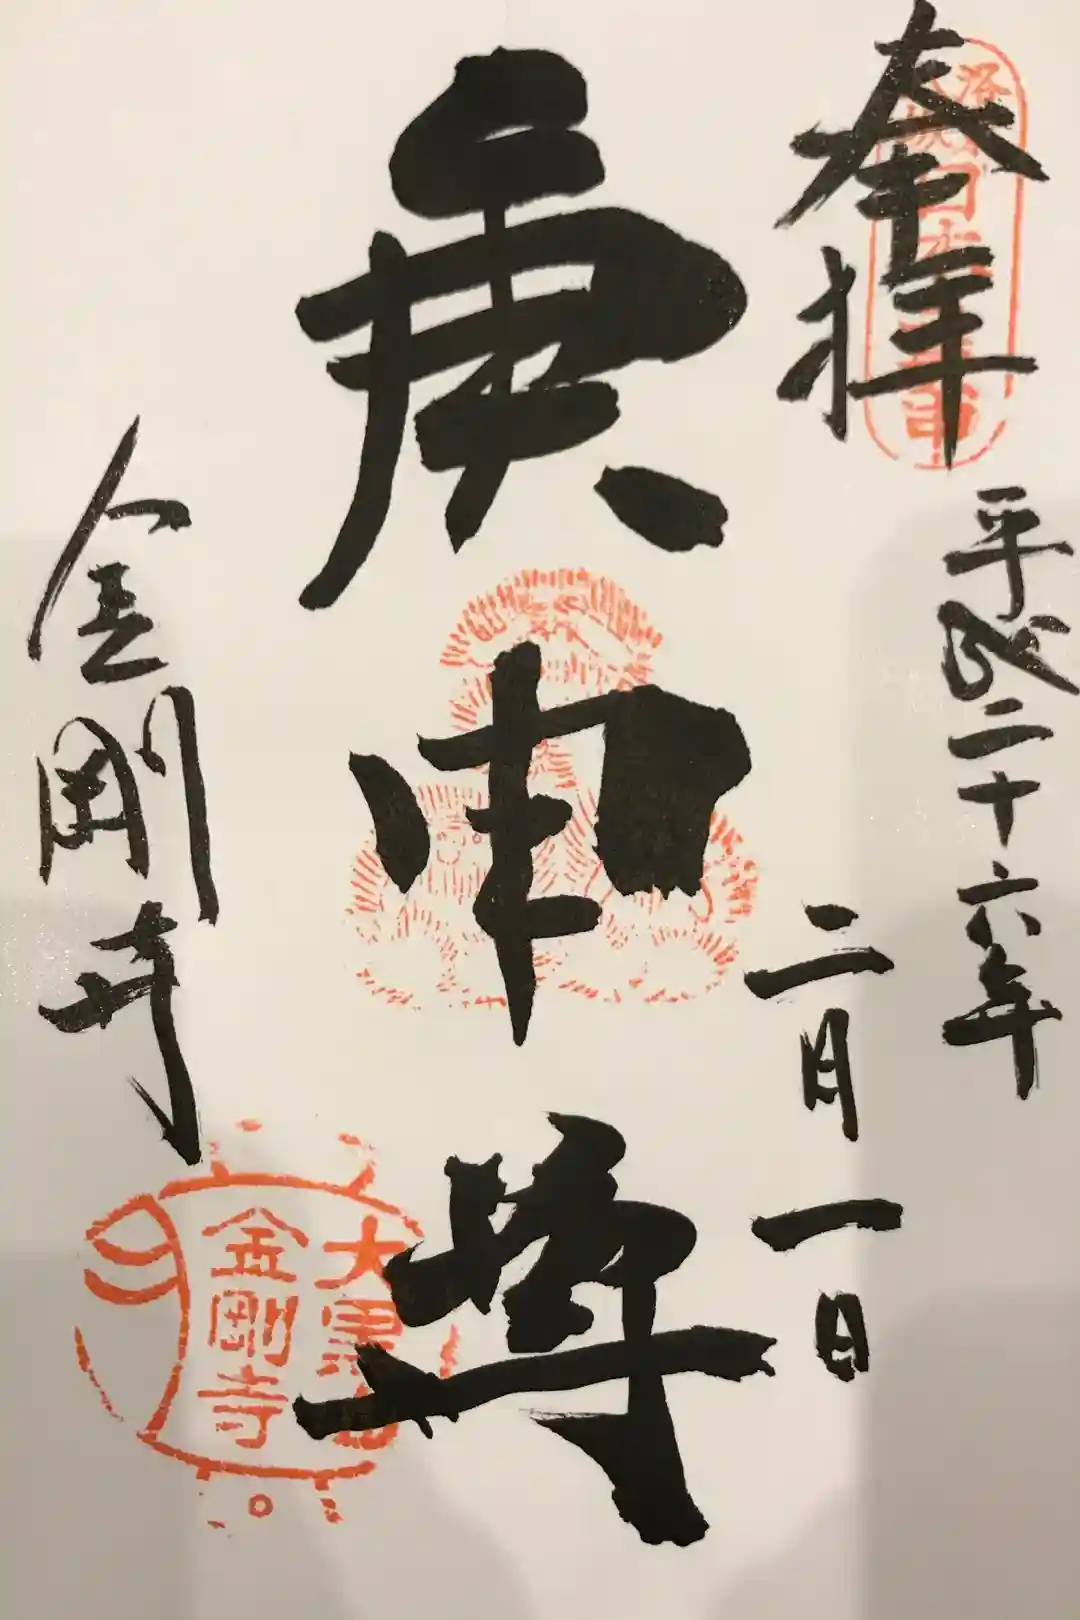 奉拝
平成二十六年
二月一日
庚申尊
金剛寺
大黒山
金剛寺